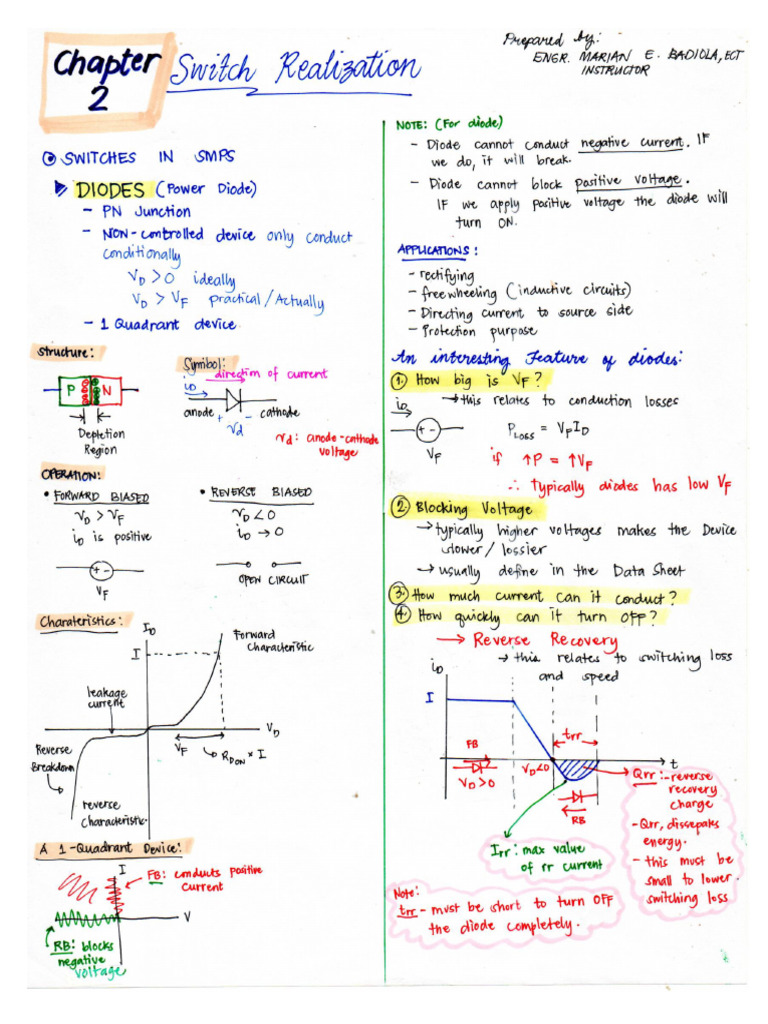 Chapter 2
Switch Realization
Prepared by:
ENGR. MARIAN E. BADIOLA, ECT
INSTRUCTOR
SWITCHES IN SMPS
DIODES (Power Diode)
- PN Junction
- NON-controlled device only conduct
conditionally
VD > 0 ideally
VD > VF practical/Actually
- 1 Quadrant device
Structure:
P N
Depletion
Region
Symbol:
direction of current
iD
anode + - cathode
Vd
Vd: anode-cathode
voltage
OPERATION:
• FORWARD BIASED
VD > VF
iD is positive
+ -
VF
• REVERSE BIASED
VD < 0
iD → 0
OPEN CIRCUIT
Charateristics:
ID
I
Forward
Characteristic
leakage
current
VD
VF
RDON × I
Reverse
Breakdown
reverse
Characteristic.
A 1-Quadrant Device:
I
FB: conducts positive
current
V
RB: blocks
negative
voltage
NOTE: (For diode)
- Diode cannot conduct negative current. IF
we do, it will break.
- Diode cannot block positive voltage.
IF we apply positive voltage the diode will
turn ON.
APPLICATIONS:
- rectifying
- freewheeling (inductive circuits)
- Directing current to source side
- Protection purpose
An interesting Feature of diodes:
1. How big is VF?
→ this relates to conduction losses
iD
+ -
VF
PLOSS = VFID
if ↑P = ↑VF
∴ typically diodes has low VF
2. Blocking Voltage
→ typically higher voltages makes the Device
slower/lossier
→ usually define in the Data Sheet
3. How much current can it conduct?
4. How quickly can it turn OFF?
→ Reverse Recovery
→ this relates to switching loss
and speed
iD
I
trr
FB
VD > 0
VD<0
t
RB
Qrr: - reverse
recovery
charge
- Qrr, dissepates
energy.
- this must be
small to lower
switching loss
Irr: max value
of rr current
Note:
trr - must be short to turn OFF
the diode completely.